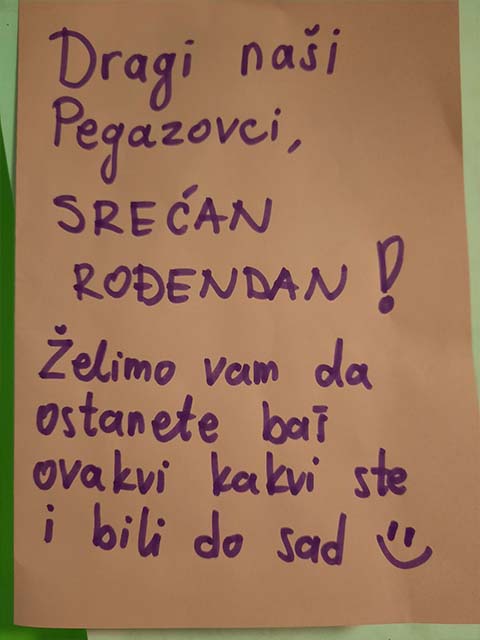 Dragi naši
Pegazovci,
SREĆAN
ROĐENDAN!
Želimo vam da
ostanete baš
ovakvi kakvi ste
i bili do sad